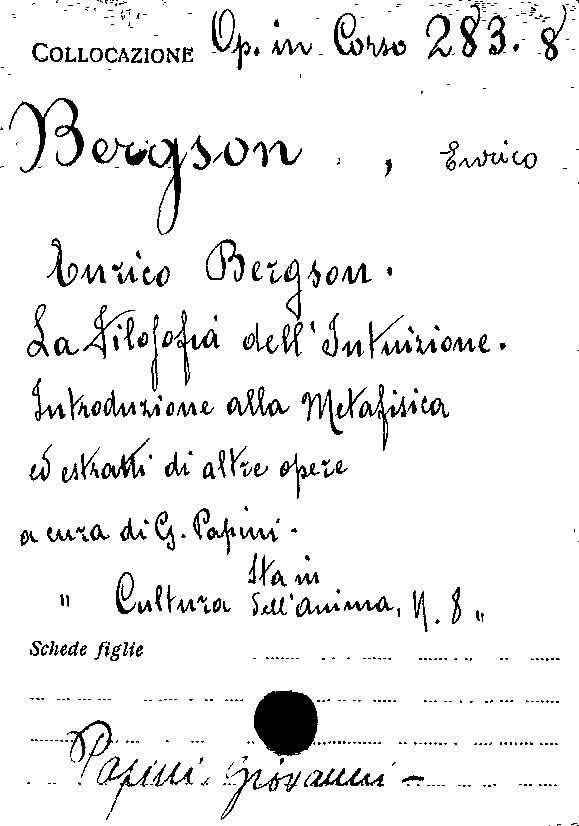 COLLOCAZIONE Op. in Corso 283.8
Bergson , Enrico
Enrico Bergson.
La Filosofia dell'Intuizione.
Introduzione alla Metafisica
ed estratti di altre opere
a cura di G. Papini.
Sta in
" Cultura dell'anima, N. 8 "
Schede figlie
Papini Giovanni -